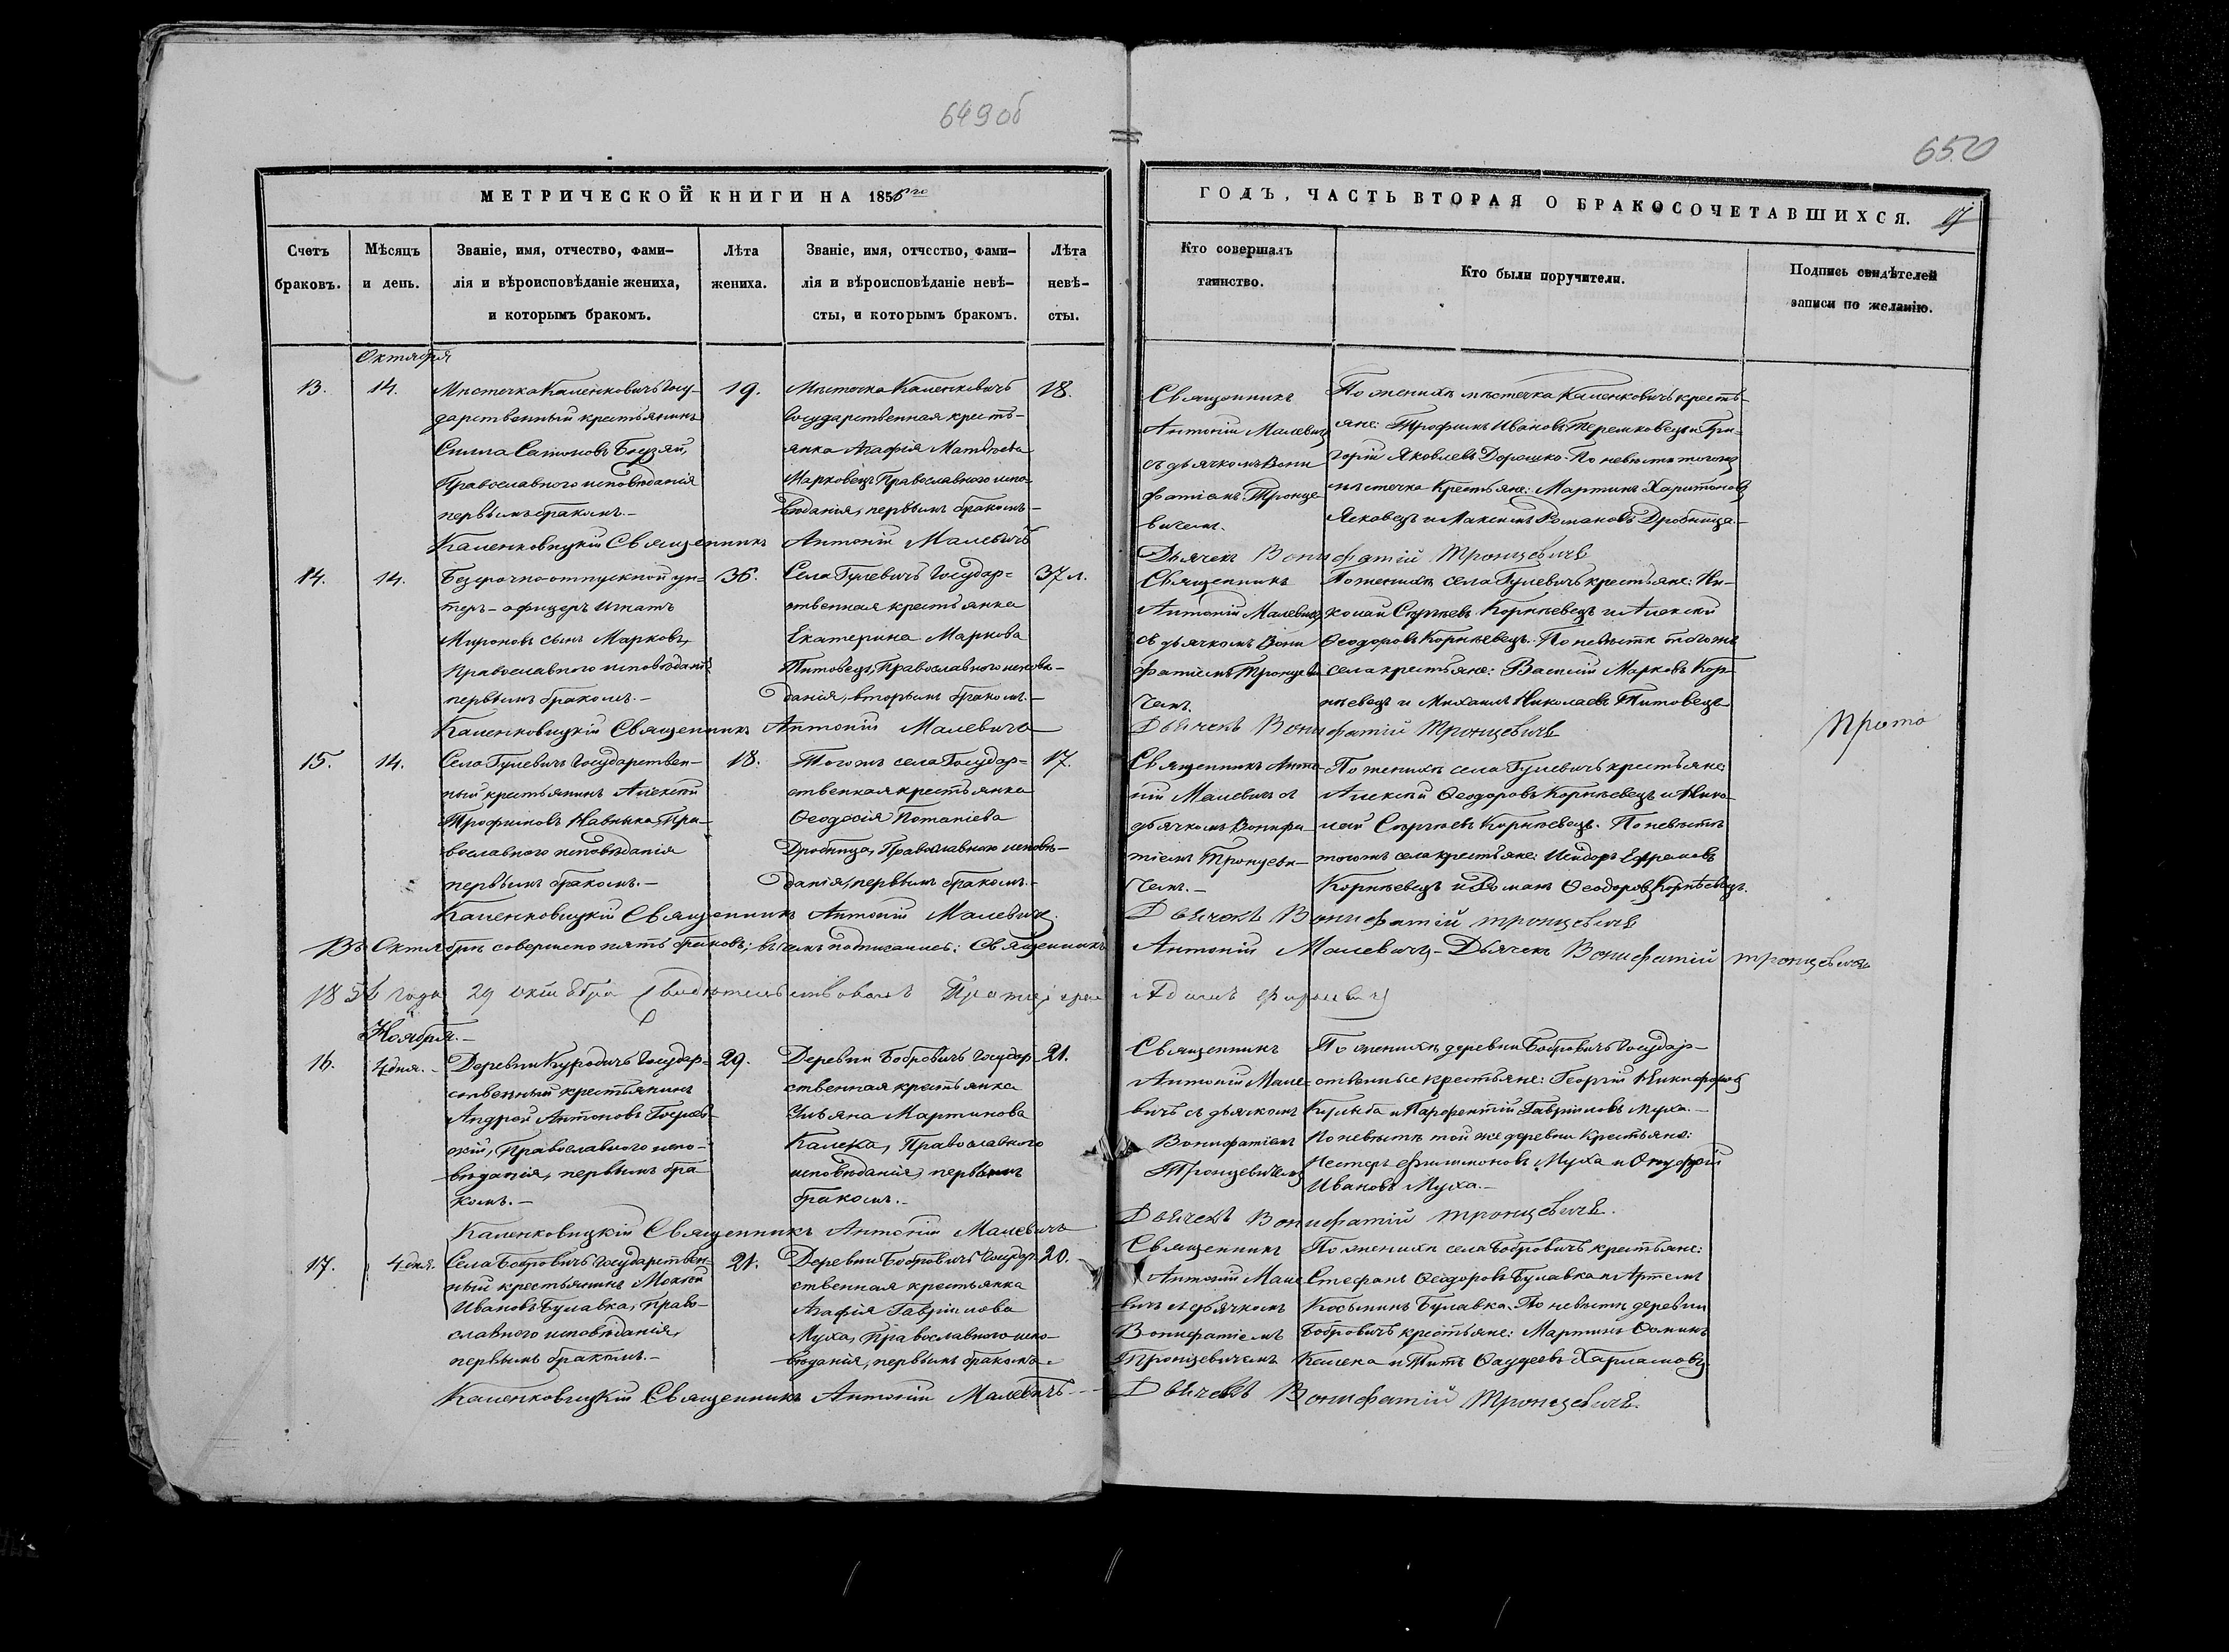 649об
650
МЕТРИЧЕСКОЙ КНИГИ НА 1856го
ГОДЪ, ЧАСТЬ ВТОРАЯ О БРАКОСОЧЕТАВШИХСЯ. 17
Счетъ браковъ.
Мѣсяцъ и день.
Званіе, имя, отчество, фами-
лія и вѣроисповѣданіе жениха,
и которымъ бракомъ.
Лѣта жениха.
Званіе, имя, отчество, фами-
лія и вѣроисповѣданіе невѣ-
сты, и которымъ бракомъ.
Лѣта невѣ-
сты.
Кто совершалъ
таинство.
Кто были поручители.
Подпись свидѣтелей
записи по желанію.
Октября
13.
14.
Мѣстечка Каленковичъ Госу-
дарственный крестьянинъ
Православнаго исповѣданія
первымъ бракомъ.-
19.
Мѣстечка Каленковичъ
Государственная кресть-
янка Агафія Матвѣева
Марковецъ Православнаго испо-
вѣданія, первымъ бракомъ-
18.
Священникъ
Антоній Малевичъ
съ дьячкомъ Вони
фатіемъ Тронце
вичемъ.
По женихѣ мѣстечка Каленковичъ кресть-
яне: Трофимъ Ивановъ Теремковецъ и Гри-
горій Яковлевъ Дорошко. По невѣстѣ тогожъ
мѣстечка крестьяне: Мартинъ Харитоновъ
Ясковецъ и Максимъ Романовъ Дробница.-
Каленковицкій Священникъ Антоній Малевичъ
Дьячекъ Вонифатій Тронцевичъ
14.
14.
Безсрочно-отпускной ун-
теръ-офицеръ Игнатъ
Мироновъ сынъ Марковъ,
Православнаго исповѣданія
первымъ бракомъ.-
36.
Села Гулевичъ Государ-
ственная крестьянка
Екатерина Маркова
Титовецъ, Православнаго исповѣ-
данія, вторымъ бракомъ.-
37 л.
Священникъ
Антоній Малевичъ
съ дьячкомъ Вони
фатіемъ Тронцеви
чемъ.
По женихѣ села Гулевичъ крестьяне: Ни-
колай Сергѣевъ Корнѣевецъ и Алексѣй
Ѳеодоровъ Корнѣевецъ. По невѣстѣ тогожъ
села крестьяне: Василій Марковъ Кор-
нѣевецъ и Михаилъ Николаевъ Титовецъ
Каленковицкій Священникъ Антоній Малевичъ
Дьячекъ Вонифатій Тронцевичъ
Прото
15.
14.
Села Гулевичъ Государствен-
ный крестьянинъ Алексѣй
Трофимовъ Навныко, Пра-
вославнаго исповѣданія
первымъ бракомъ.-
18.
Тогожъ села Государ-
ственная крестьянка
Ѳеодосія Потапіева
Дробница, Православнаго исповѣ-
данія, первымъ бракомъ.-
17.
Священникъ Анто-
ній Малевичъ съ
дьячкомъ Вонифа-
тіемъ Тронцеви-
чемъ.-
По женихѣ села Гулевичъ крестьяне:
Алексѣй Ѳеодоровъ Корнѣевецъ и Нико-
лай Сергѣевъ Корнѣевецъ. По невѣстѣ
тогожъ села крестьяне: Исидоръ Ефремовъ
Корнѣевецъ и Романъ Ѳеодоровъ Корнѣевецъ.
Каленковицкій Священникъ Антоній Малевичъ.
Дьячекъ Вонифатій Тронцевичъ
Въ Октябрѣ совершено пять браковъ; въ чемъ подписались: Священникъ Антоній Малевичъ - Дьячекъ Вонифатій Тронцевичъ
1856 года 29 октября свидѣтельствовалъ Протоіерей Адамъ
Ноября.-
16.
4 дня.-
Деревни Куродичъ Государ-
ственный крестьянинъ
Андрей Антоновъ
скій, Православнаго испо-
вѣданія, первымъ бра-
комъ.-
29.
Деревни Бобровичъ Государ-
ственная крестьянка
Ульяна Мартинова
Калека, Православнаго
исповѣданія, первымъ
бракомъ.-
21.
Священникъ
Антоній Мале-
вичъ съ дьячкомъ
Вонифатіемъ
Тронцевичемъ
По женихѣ деревни Бобровичъ Государ-
ственные крестьяне: Георгій Никифоровъ
Кульба и Парфентій Гавриловъ Муха.-
По невѣстѣ той же деревни крестьяне:
Несторъ Филимоновъ Муха и Онуфрій
Ивановъ Муха.-
Каленковицкій Священникъ Антоній Малевичъ
Дьячекъ Вонифатій Тронцевичъ.
17.
4 дня.
Села Бобровичъ Государствен-
ный крестьянинъ Мокей
Ивановъ Булавка, Право-
славнаго исповѣданія,
первымъ бракомъ.-
21.
Деревни Бобровичъ Государ-
ственная крестьянка
Агафія Гаврилова
Муха, Православнаго испо-
вѣданія, первымъ бракомъ.-
20.
Священникъ
Антоній Мале
вичъ съ дьячкомъ
Вонифатіемъ
Тронцевичемъ
По женихѣ села Бобровичъ крестьяне:
Стефанъ Ѳеодоровъ Булавка и Артемъ
Косьминъ Булавка. По невѣстѣ деревни
Бобровичъ крестьяне: Мартинъ Ѳоминъ
Калека и Титъ Ѳаддеевъ Харламовъ.
Каленковицкій Священникъ Антоній Малевичъ.--
Дьячекъ Вонифатій Тронцевичъ.